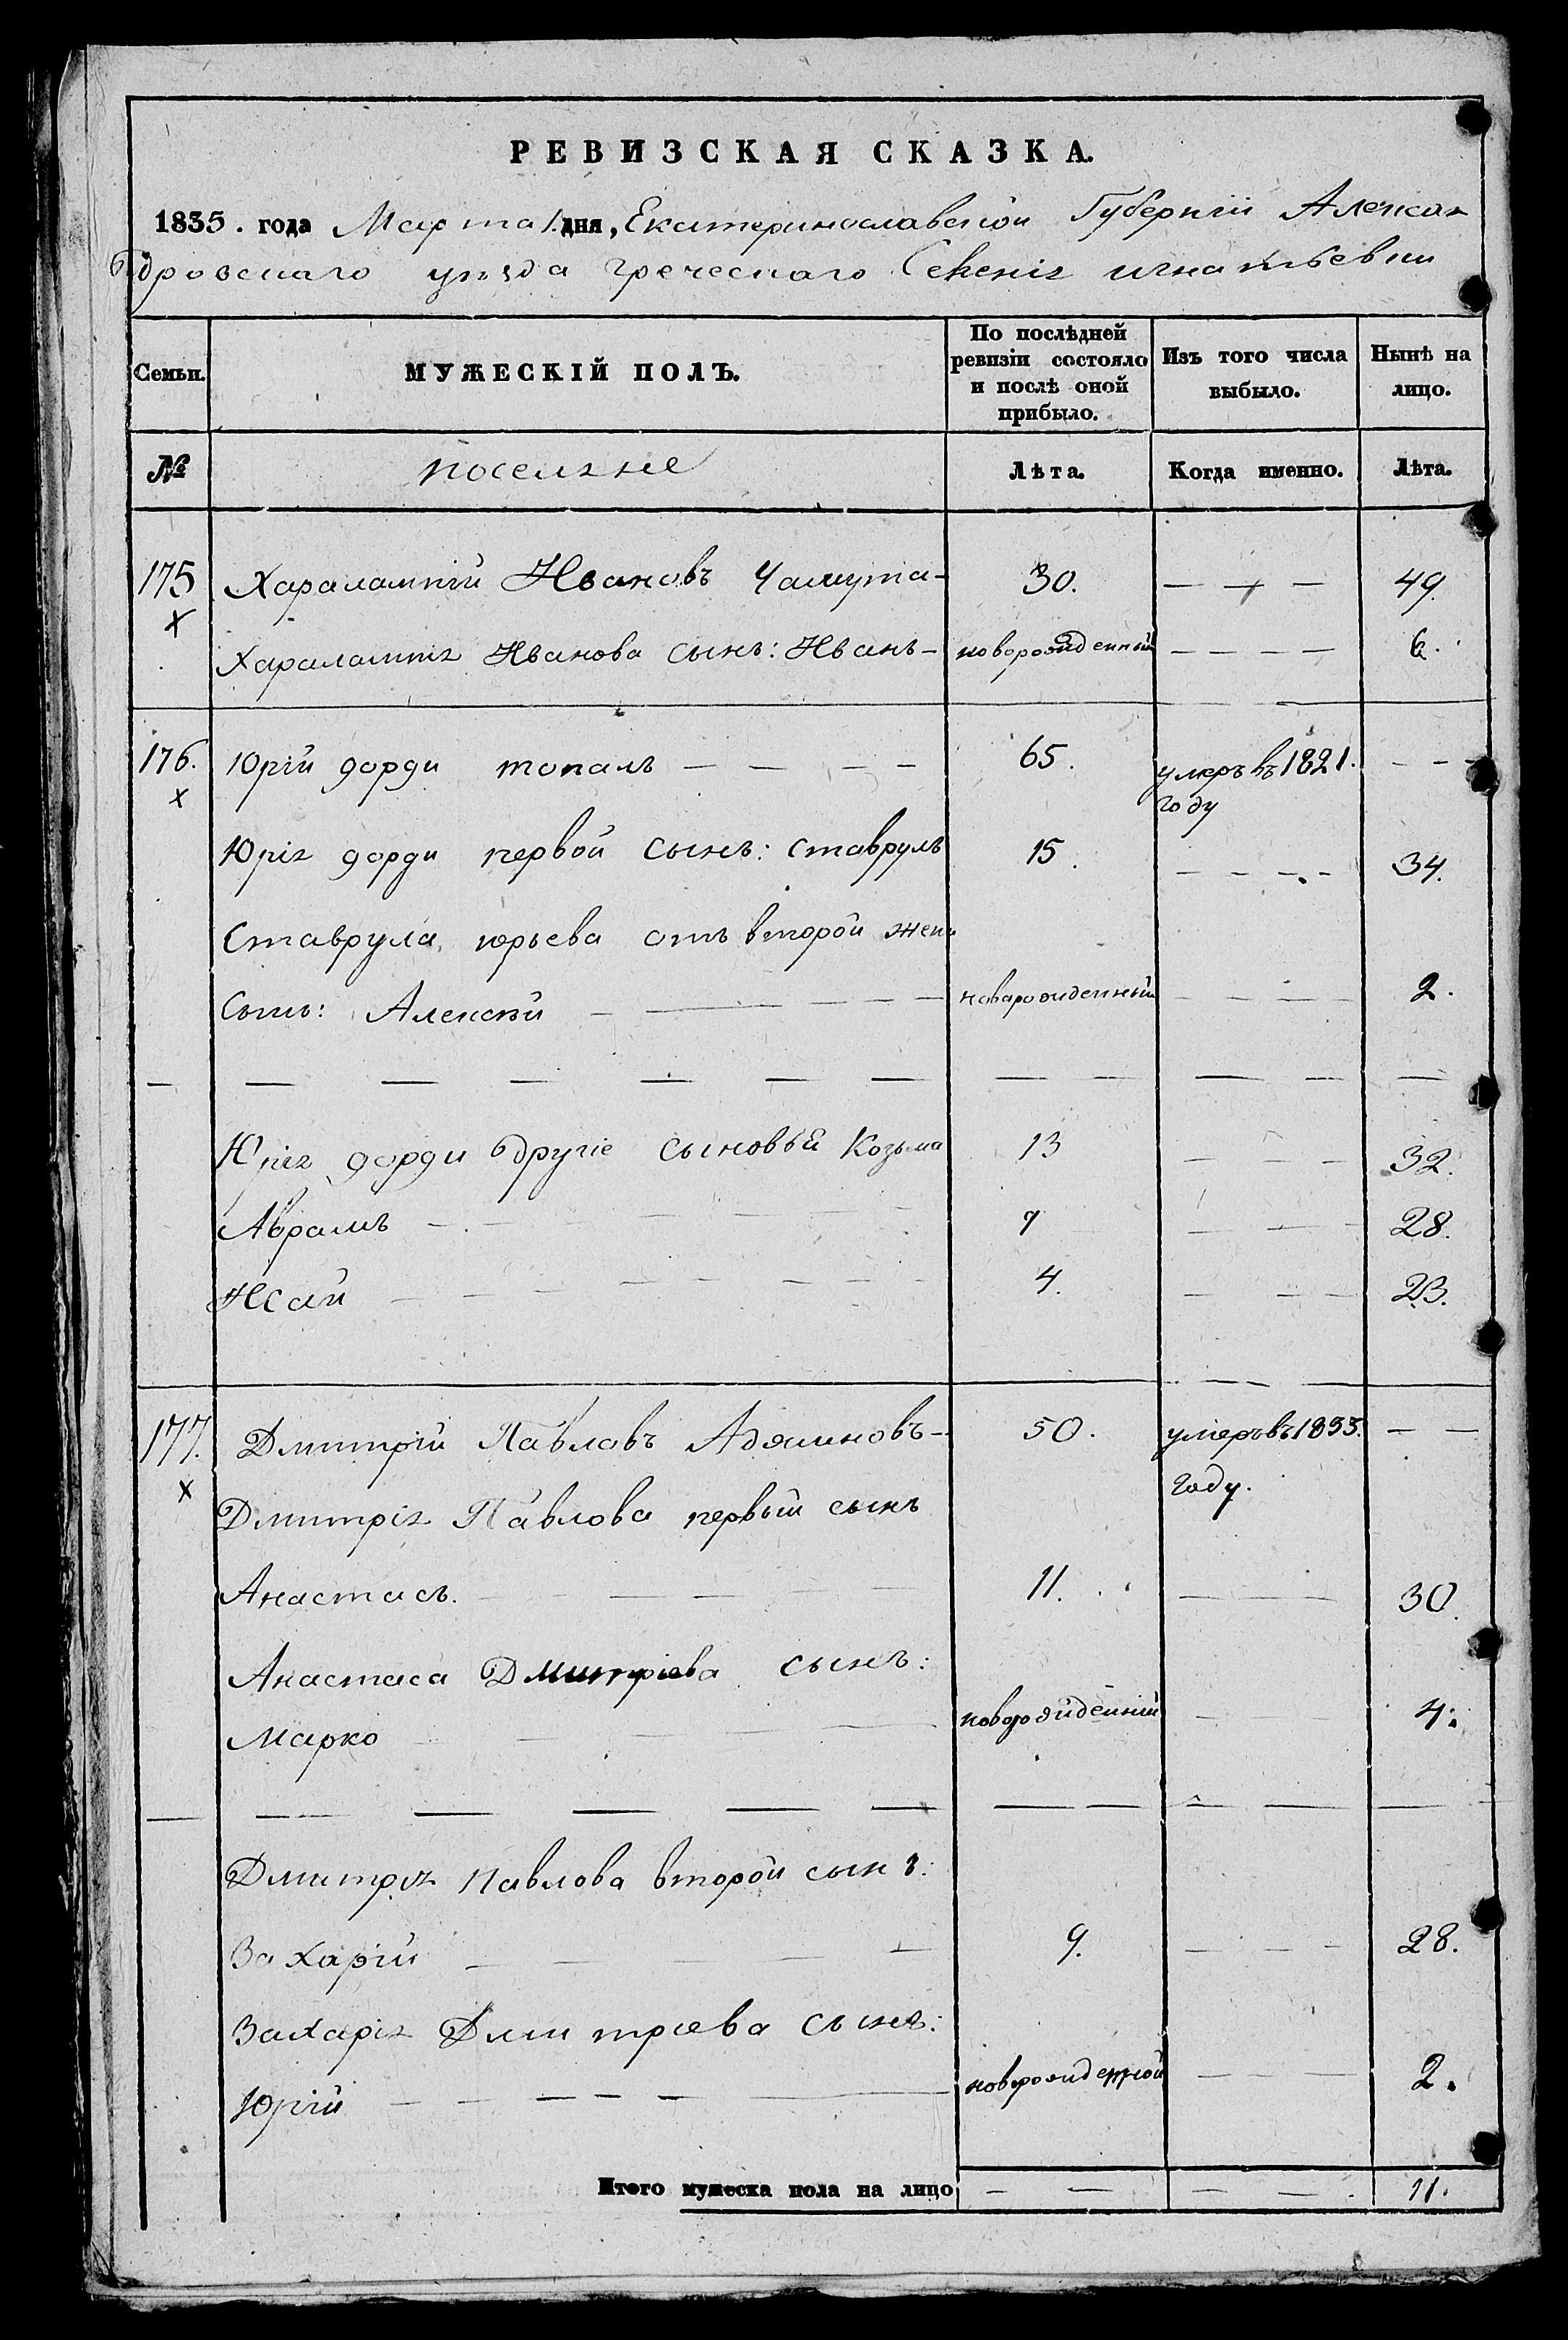 РЕВИЗСКАЯ СКАЗКА.
1835. года Марта 1. дня, Екатеринославской Губернии Алексан
дровскаго уѣзда греческаго Селенія игнатьевки
Семьи. МУЖЕСКІЙ ПОЛЪ. По послѣдней ревизіи состояло и послѣ оной прибыло. Изъ того числа выбыло. Нынѣ на лицо.
№ поселяне Лѣта. Когда именно. Лѣта.
175 Харалампій Ивановъ Чамута- 30. — — — 49.
х Харалампія Иванова сынъ: Иванъ- новорожденный — — — — 6.
176. Юрій дорди топалъ — — — — 65. умеръ въ 1821. — — —
х году
Юрія дорди первой сынъ: ставрулъ 15. — — — — 34.
Ставрула юрьева отъ второй жены
Сынъ: Алексѣй — — — — — новарожденный — — — — 2.
— — — — — — — — — — — —
Юрія дорди другіе сыновья Козьма 13 — — — 32.
Аврамъ — — — — — — 9 — — — 28.
Исай — — — — — — — 4. — — — 23.
177. Дмитрій Павловъ Аджиновъ- 50. умеръ въ 1833. — —
х году.
Дмитрія Павлова первый сынъ
Анастасъ. — — — — — 11. — — — 30.
Анастаса Дмитріева сынъ:
Марко — — — — — новорожденній — — 4.
— — — — — — — — — — — —
Дмитрія Павлова второй сынъ:
Захарій — — — — 9. — — — 28.
Захарія Дмитріева сынъ:
Юрій — — — — — новорожденной — — — 2.
Итого мужеска пола на лицо — — — — 11.